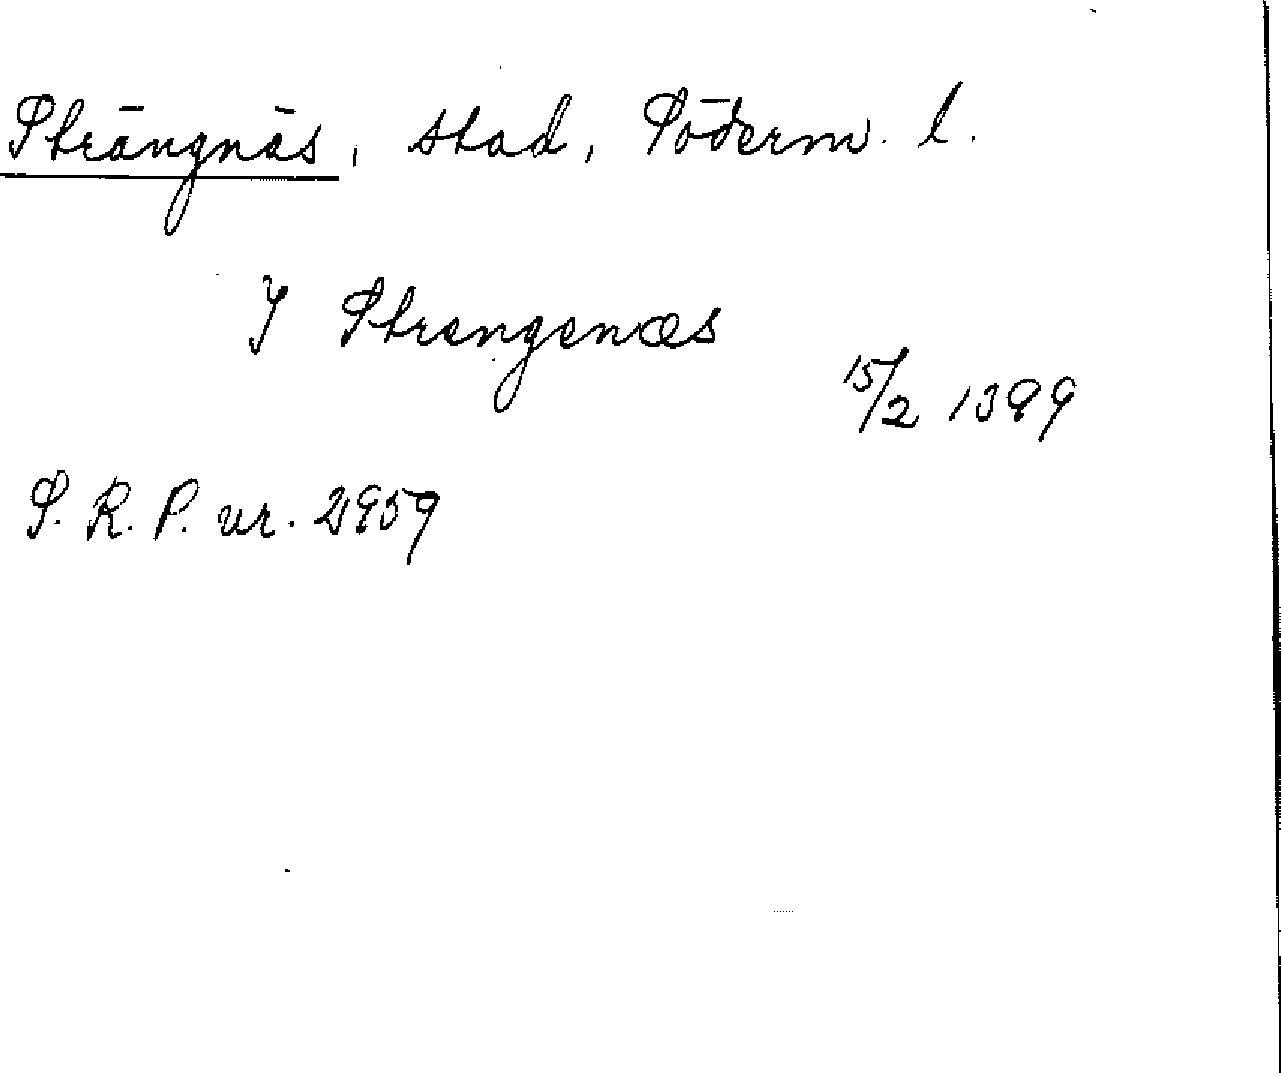 Strängnäs, stad, Söderm. l.
J Strengenæs
15/2 1399
S. R. P. nr. 2959